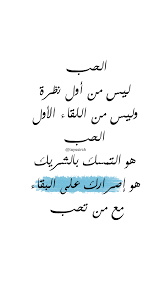 الحب
ليس من أول نظرة
وليس من اللقاء الأول
الحب
هو التمسك بالشريك
هو إصرارك على البقاء
مع من تحب